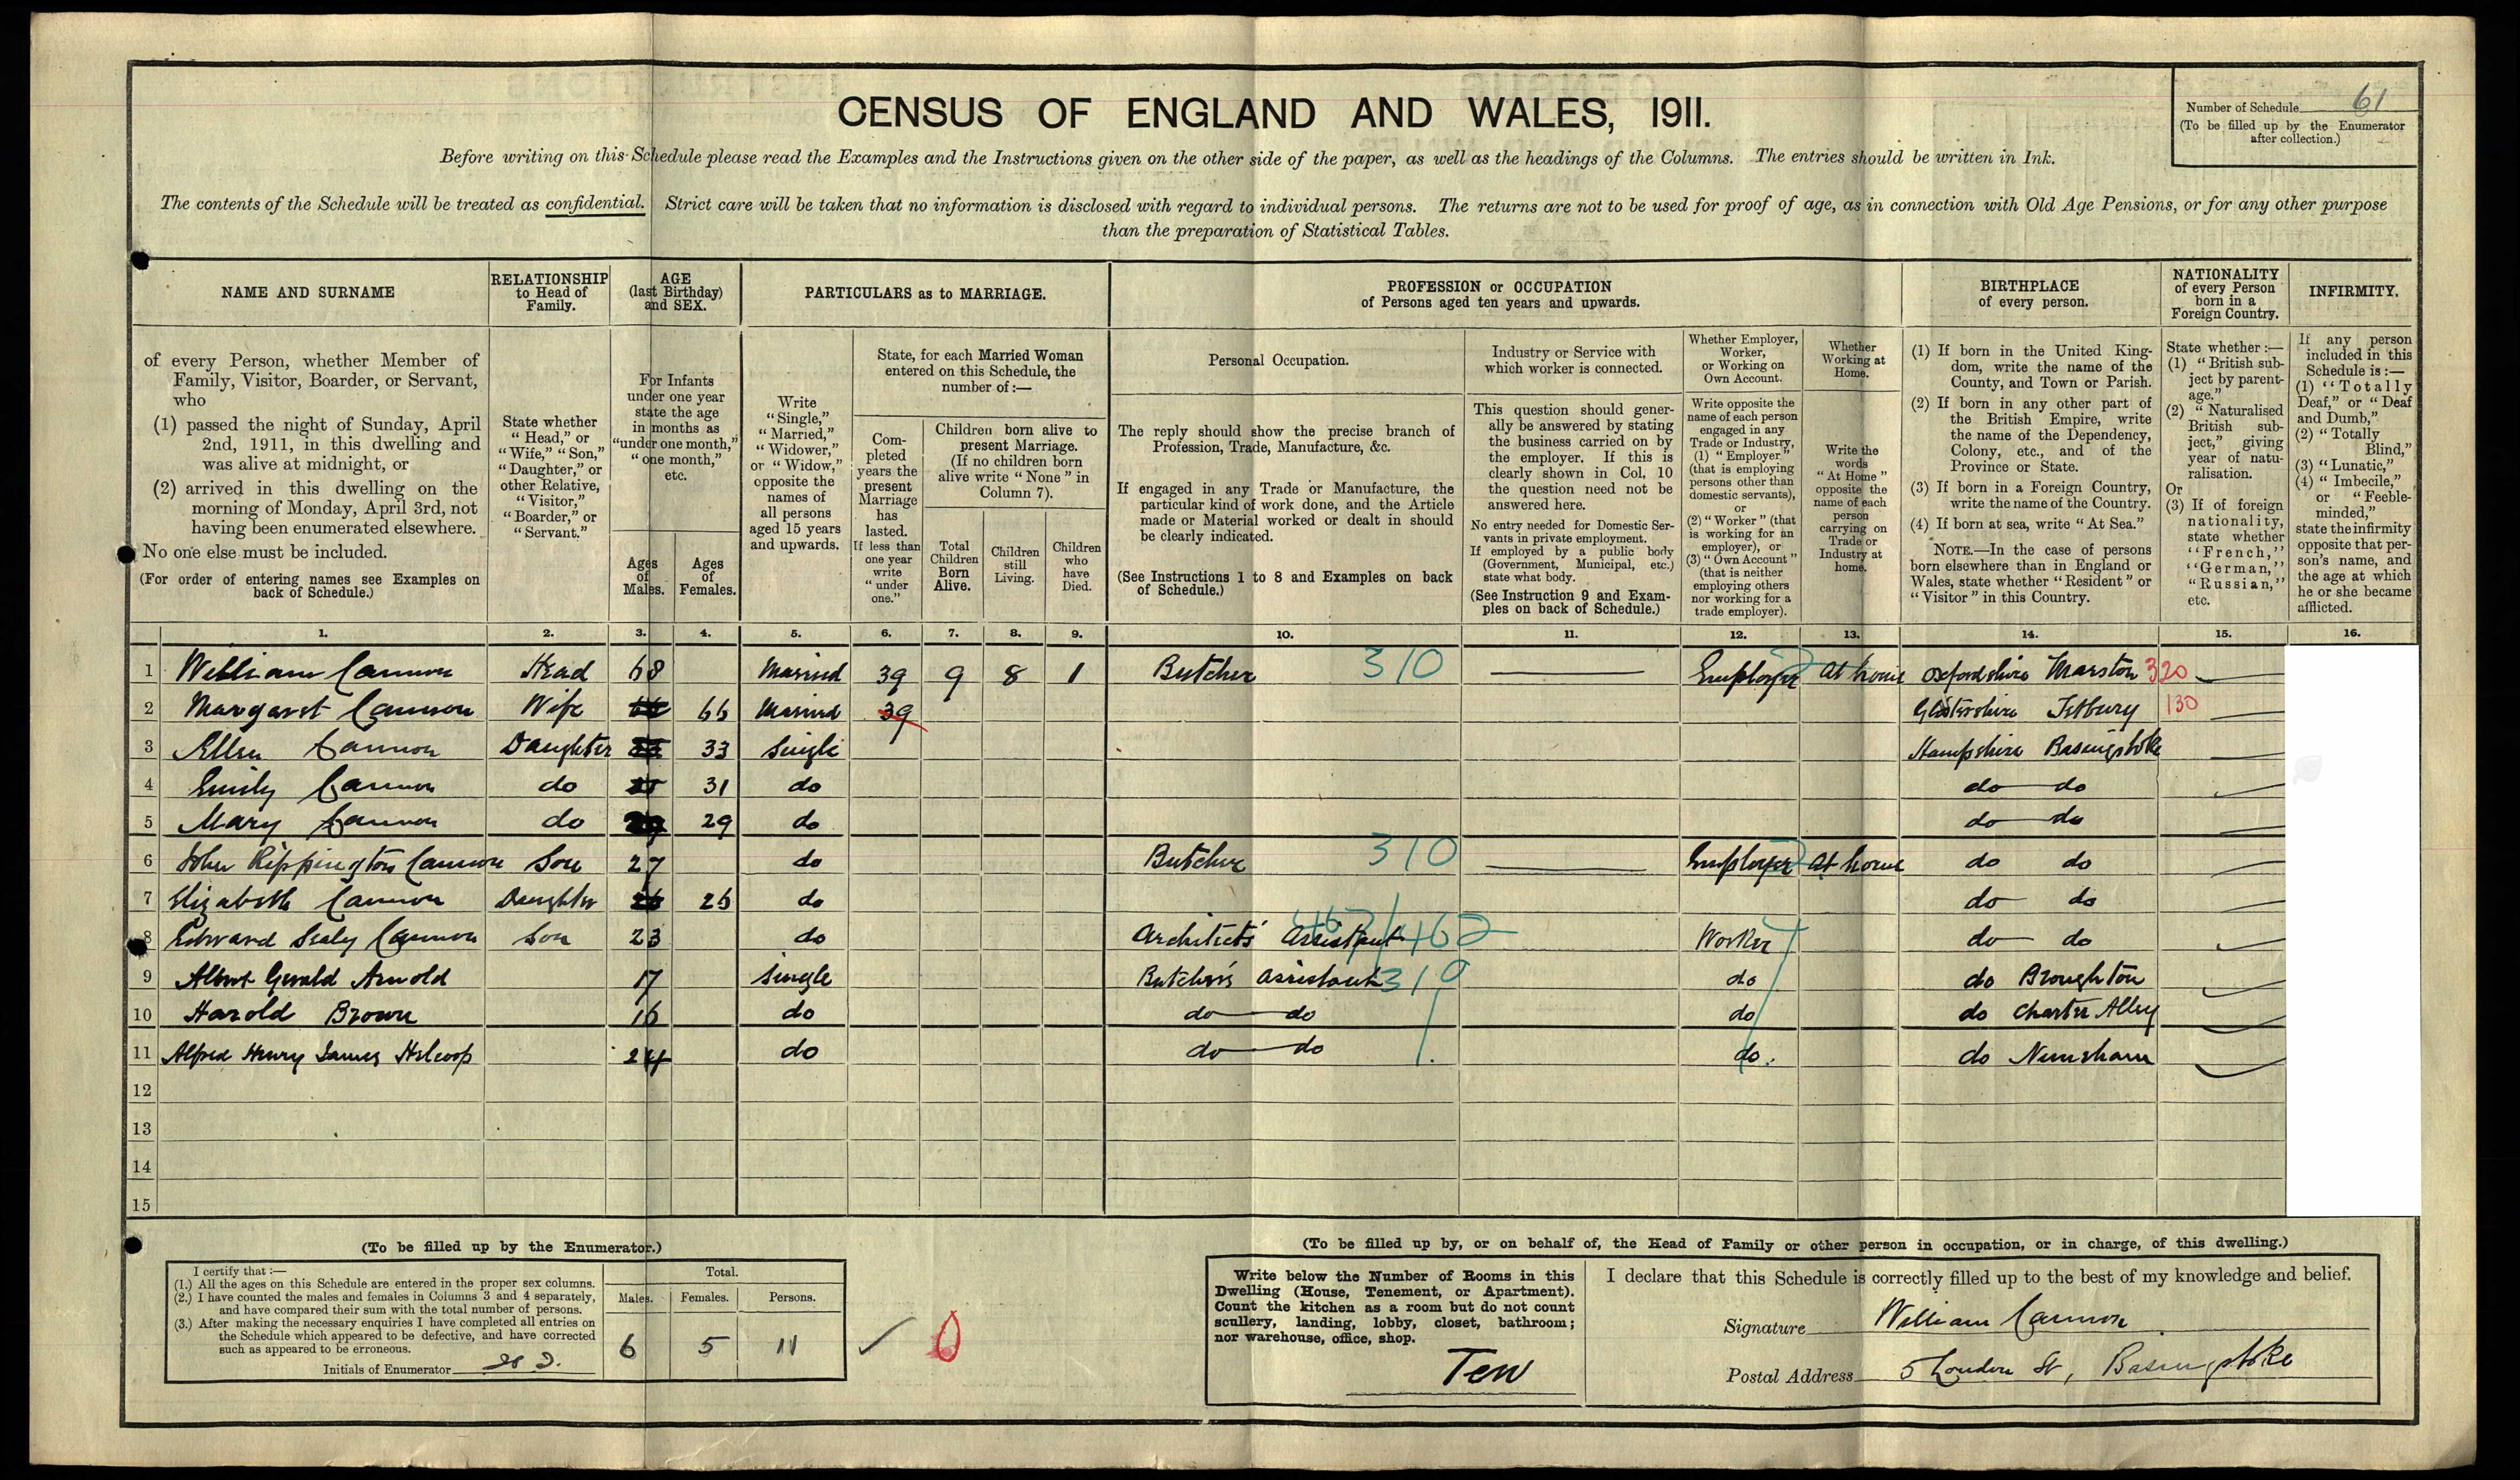 CENSUS OF ENGLAND AND WALES, 1911.
Number of Schedule 61
(To be filled up by the Enumerator
after collection.)
Before writing on this Schedule please read the Examples and the Instructions given on the other side of the paper, as well as the headings of the Columns. The entries should be written in Ink.
The contents of the Schedule will be treated as confidential. Strict care will be taken that no information is disclosed with regard to individual persons. The returns are not to be used for proof of age, as in connection with Old Age Pensions, or for any other purpose
than the preparation of Statistical Tables.
NAME AND SURNAME
RELATIONSHIP
to Head of
Family.
AGE
(last Birthday)
and SEX.
PARTICULARS as to MARRIAGE.
PROFESSION or OCCUPATION
of Persons aged ten years and upwards.
BIRTHPLACE
of every person.
NATIONALITY
of every Person
born in a
Foreign Country.
INFIRMITY.
of every Person, whether Member of
Family, Visitor, Boarder, or Servant,
who
(1) passed the night of Sunday, April
2nd, 1911, in this dwelling and
was alive at midnight, or
(2) arrived in this dwelling on the
morning of Monday, April 3rd, not
having been enumerated elsewhere.
No one else must be included.
(For order of entering names see Examples on
back of Schedule.)
State whether
"Head," or
"Wife," "Son,"
"Daughter," or
other Relative,
"Visitor,"
"Boarder," or
"Servant."
For Infants
under one year
state the age
in months as
"under one month,"
"one month,"
etc.
Ages
of
Males.
Ages
of
Females.
Write
"Single,"
"Married,"
"Widower,"
or "Widow,"
opposite the
names of
all persons
aged 15 years
and upwards.
State, for each Married Woman
entered on this Schedule, the
number of:—
Com-
pleted
years the
present
Marriage
has
lasted.
If less than
one year
write
"under
one."
Children born alive to
present Marriage.
(If no children born
alive write "None" in
Column 7).
Total
Children
Born
Alive.
Children
still
Living.
Children
who
have
Died.
Personal Occupation.
The reply should show the precise branch of
Profession, Trade, Manufacture, &c.
If engaged in any Trade or Manufacture, the
particular kind of work done, and the Article
made or Material worked or dealt in should
be clearly indicated.
(See Instructions 1 to 8 and Examples on back
of Schedule.)
Industry or Service with
which worker is connected.
This question should gener-
ally be answered by stating
the business carried on by
the employer. If this is
clearly shown in Col. 10
the question need not be
answered here.
No entry needed for Domestic Ser-
vants in private employment.
If employed by a public body
(Government, Municipal, etc.)
state what body.
(See Instruction 9 and Exam-
ples on back of Schedule.)
Whether Employer,
Worker,
or Working on
Own Account.
Write opposite the
name of each person
engaged in any
Trade or Industry,
(1) "Employer"
(that is employing
persons other than
domestic servants),
or
(2) "Worker" (that
is working for an
employer), or
(3) "Own Account"
(that is neither
employing others
nor working for a
trade employer).
Whether
Working at
Home.
Write the
words
"At Home"
opposite the
name of each
person
carrying on
Trade or
Industry at
home.
(1) If born in the United King-
dom, write the name of the
County, and Town or Parish.
(2) If born in any other part of
the British Empire, write
the name of the Dependency,
Colony, etc., and of the
Province or State.
(3) If born in a Foreign Country,
write the name of the Country.
(4) If born at sea, write "At Sea."
NOTE.—In the case of persons
born elsewhere than in England or
Wales, state whether "Resident" or
"Visitor" in this Country.
State whether:—
(1) "British sub-
ject by parent-
age."
(2) "Naturalised
British sub-
ject," giving
year of natu-
ralisation.
Or
(3) If of foreign
nationality,
state whether
"French,"
"German,"
"Russian,"
etc.
If any person
included in this
Schedule is:—
(1) "Totally
Deaf," or "Deaf
and Dumb,"
(2) "Totally
Blind,"
(3) "Lunatic,"
(4) "Imbecile,"
or "Feeble-
minded,"
state the infirmity
opposite that per-
son's name, and
the age at which
he or she became
afflicted.
1. 2. 3. 4. 5. 6. 7. 8. 9. 10. 11. 12. 13. 14. 15. 16.
1 William Cannon Head 68 Married 39 9 8 1 Butcher 310 Employer At home Oxfordshire Marston 320
2 Margaret Cannon Wife 66 Married 39 Tetbury 130
3 Ellen Cannon Daughter 33 Single Hampshire Basingstoke
4 Emily Cannon do 31 do do do
5 Mary Cannon do 29 do do do
6 John Rippington Cannon Son 27 do Butcher 310 Employer At home do do
7 Elizabeth Cannon Daughter 26 do do do
8 Edward Sealy Cannon Son 23 do Architects' Assistant 462 Worker do do
9 Albert Gerald Arnold 17 Single Butcher's Assistant 319 do do Broughton
10 Harold Brown 16 do do do do do Charter Alley
11 Alfred Henry James 24 do do do do. do
12
13
14
15
(To be filled up by the Enumerator.)
I certify that:—
(1.) All the ages on this Schedule are entered in the proper sex columns.
(2.) I have counted the males and females in Columns 3 and 4 separately,
and have compared their sum with the total number of persons.
(3.) After making the necessary enquiries I have completed all entries on
the Schedule which appeared to be defective, and have corrected
such as appeared to be erroneous.
Initials of Enumerator
Total.
Males. Females. Persons.
6 5 11
(To be filled up by, or on behalf of, the Head of Family or other person in occupation, or in charge, of this dwelling.)
Write below the Number of Rooms in this
Dwelling (House, Tenement, or Apartment).
Count the kitchen as a room but do not count
scullery, landing, lobby, closet, bathroom;
nor warehouse, office, shop.
Ten
I declare that this Schedule is correctly filled up to the best of my knowledge and belief.
Signature William Cannon
Postal Address 5 London St, Basingstoke